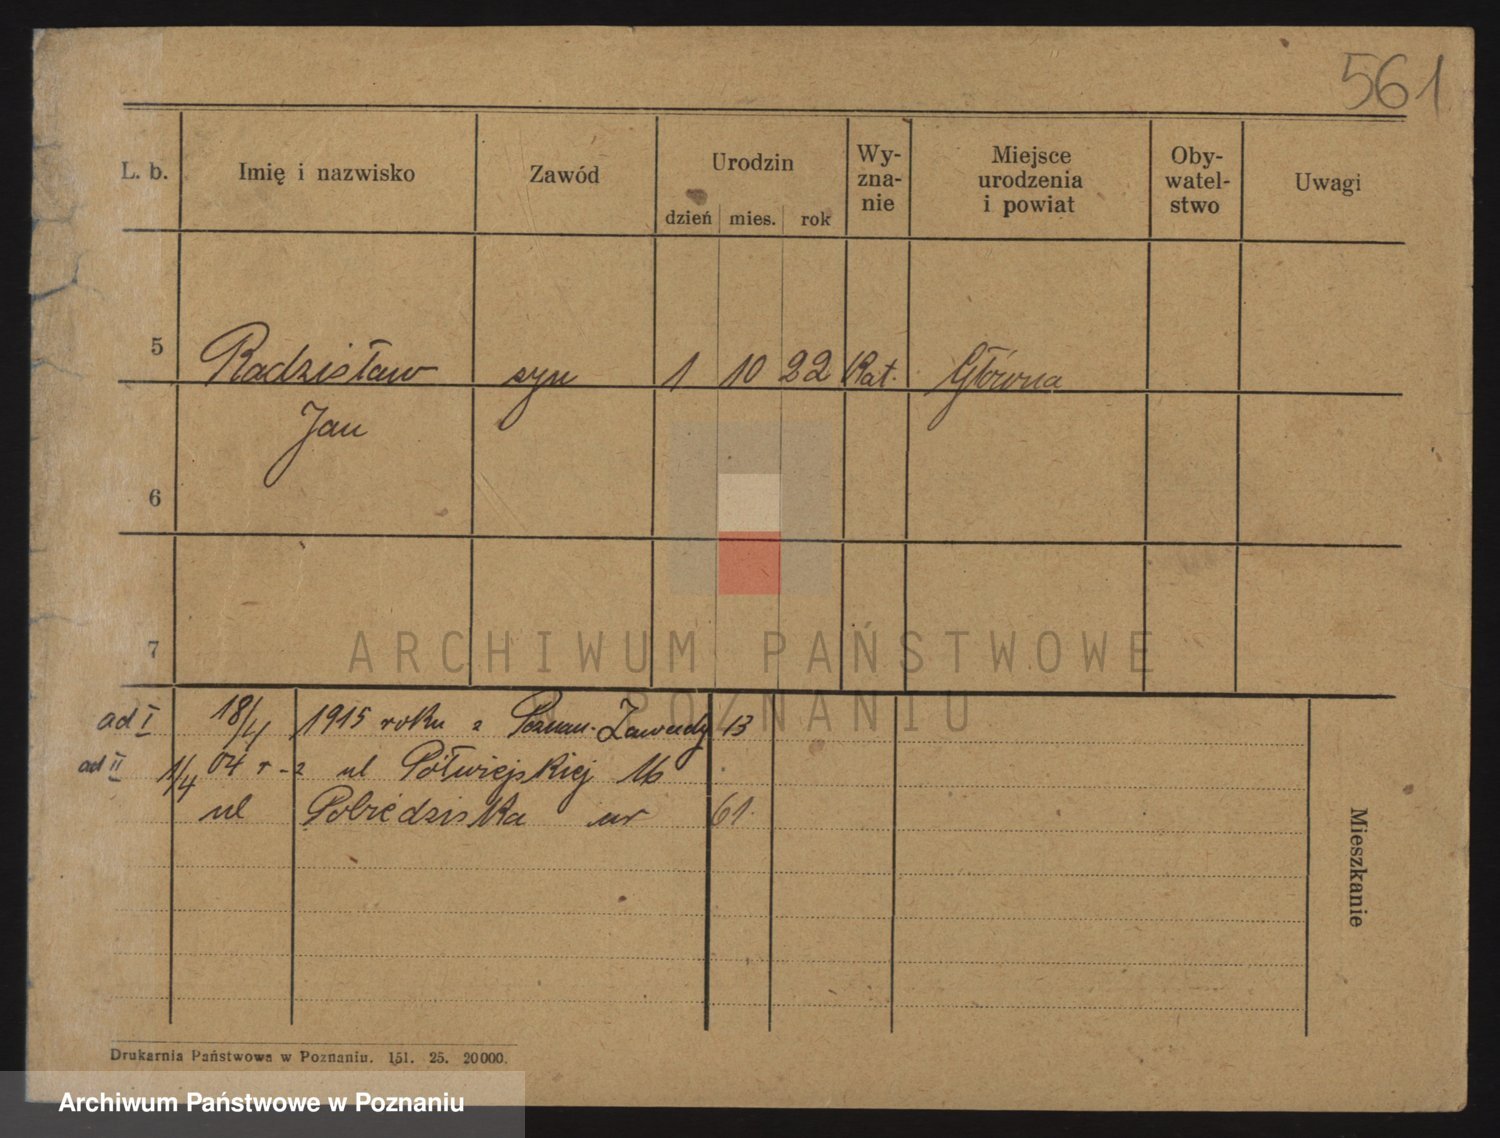 561
L. b. Imię i nazwisko Zawód Urodzin dzień mies. rok Wy-
zna-
nie Miejsce
urodzenia
i powiat Oby-
watel-
stwo Uwagi
5 Radzisław syn 1 10 22 Kat. Główna
Jan
6
7
ARCHIWUM PAŃSTWOWE
W POZNANIU
ad I 18/4 1915 roku z Poznan-Zawady 13
ad II 1/4 04 r - z ul Półwiejskiej 16
ul Pobiedziska nr 61
Mieszkanie
Drukarnia Państwowa w Poznaniu. 151. 25. 20000.
Archiwum Państwowe w Poznaniu